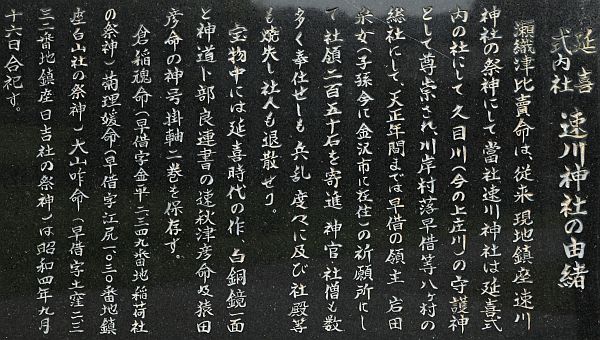 延喜式内社 速川神社の由緒
瀬織津比賣命は、従来現地鎮座速川
神社の祭神にして當社速川神社は延喜式
内の社にして久目川(今の上庄川)の守護神
として尊崇され、川岸村落早借等八ヶ村の
総社にして、天正年間までは早借の領主 岩田
采女(子孫今に金沢市に在住)の祈願所にし
て社領二百五十石を寄進 神官社僧も数
多く奉仕せしも 兵乱 度々に及び社殿等
も焼失し社人も退散せり。
宝物中には延喜時代の作、白銅鏡一面
と神道卜部良連書の速秋津彦命及猿田
彦命の神号掛軸一巻を保存す。
倉稲魂命(早借字金平二三四九番地稲荷社
の祭神)菊理媛命(早借字江尻一〇三〇番地鎮
座白山社の祭神)大山咋命(早借字土窪二三
三二番地鎮座日吉社の祭神)は昭和四年九月
十六日合祀す。